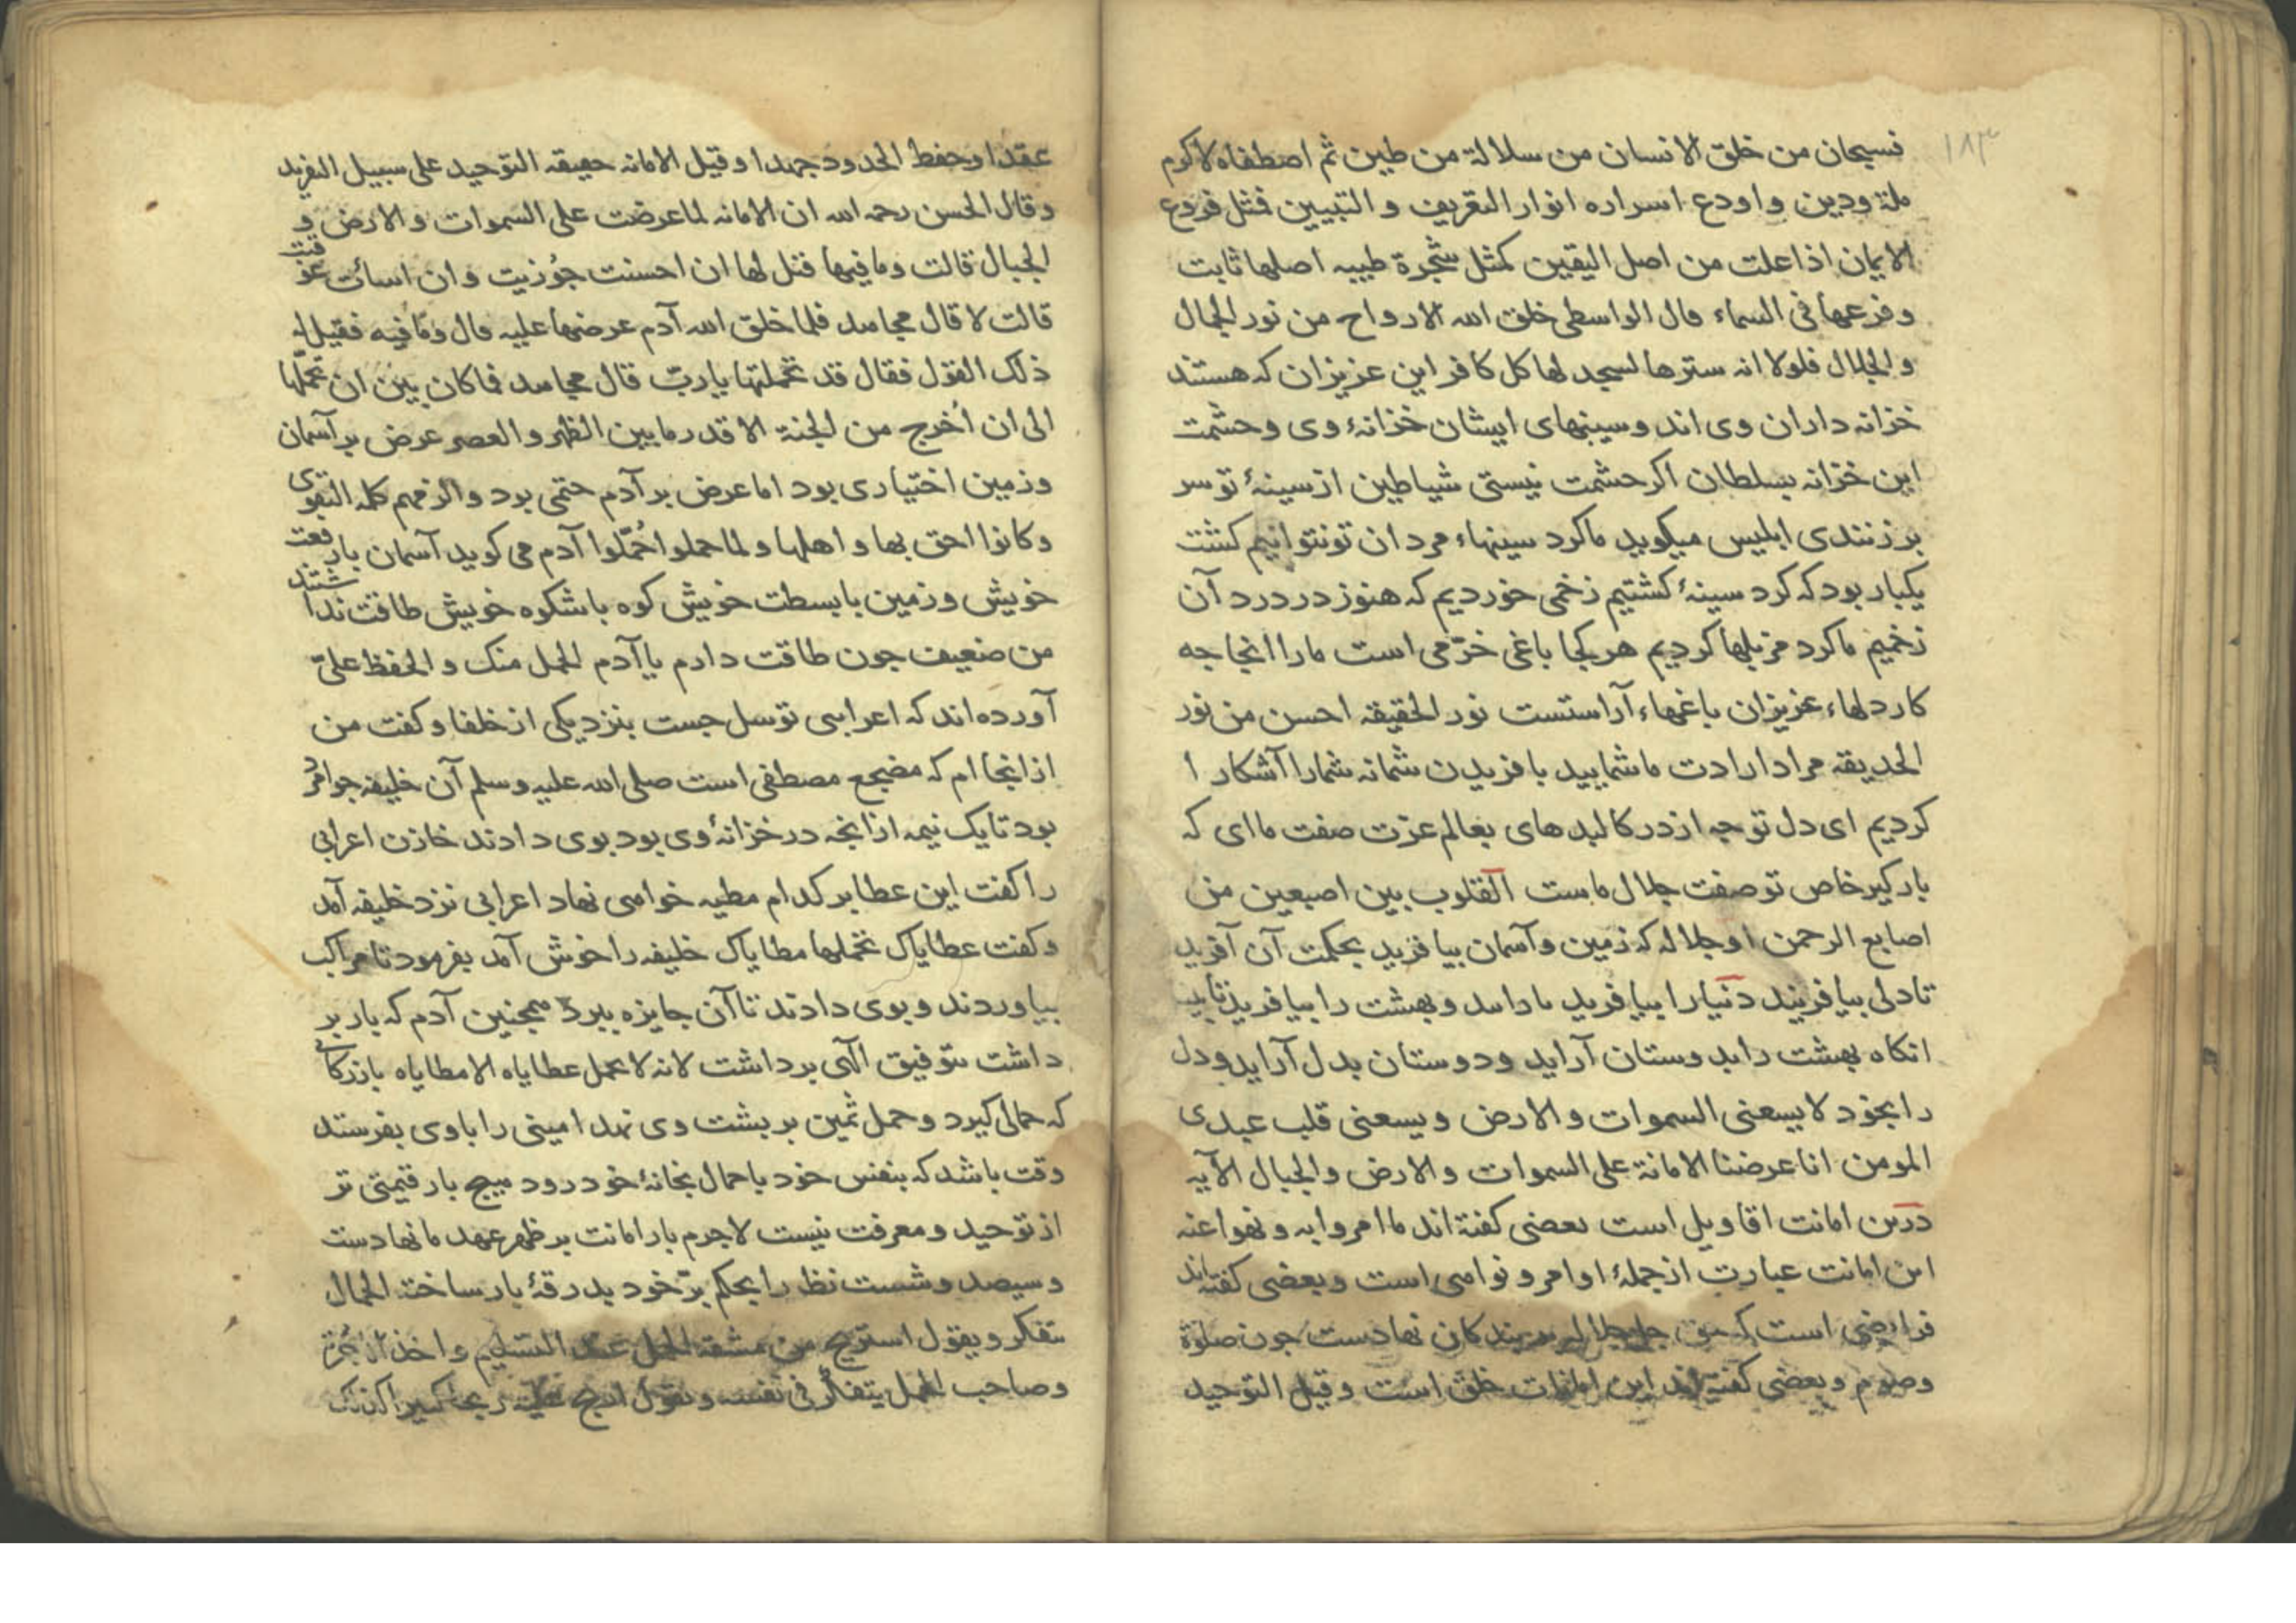 ۱۸۳
فسبحان من خلق الانسان من سلالة من طین ثم اصطفاه لاکرم
ملة ودین واودع اسراره انوار التعریف و التبیین فمثل فروع
الایمان اذا علت من اصل الیقین کمثل شجرة طیبه اصلها ثابت
وفرعها فی السماء قال الواسطی خلق الله الارواح من نور الجمال
والجلال فلولا انه سترها لسجد لها کل کافر این عزیزان که هستند
خزانه داران وی اند وسینهای ایشان خزانهٔ وی وحشمت
این خزانه بسلطان اکر حشمت نیستی شیاطین از سینهٔ تو سر
بر زنندی ابلیس میکوید ما کرد سینهاء مردان تو نتوانیم کشت
یکبار بود که کرد سینهٔ کشتیم زخمی خوردیم که هنوز در درد آن
زخمیم ما کرد مزبلها کردیم هر کجا باغی خرّمی است ما را انجا چه
کار دلهاء عزیزان باغهاء آراستست نور الحقیقه احسن من نور
الحدیقه مراد ارادت ما شمایید بافریدن شمانه شما را آشکار ا
کردیم ای دل تو چه از در کالبدهای بعالم عزت صفت ما ای که
بار کیر خاص تو صفت جلال ماست القلوب بین اصبعین من
اصابع الرحمن او جلاله که زمین وآسمان بیافرید بحکمت آن آفرید
تا دلی بیافریند دنیا را بیافرید ما داند وبهشت را بیافرید تا
انکاه بهشت را بدوستان آراید ودوستان بدل آراید ودل
را بخود لا یسعنی السموات والارض ویسعنی قلب عبدی
المومن انا عرضنا الامانة علی السموات والارض والجبال الآیه
درین امانت اقاویل است بعضی کفته اند ما امروا به ونهوا عنه
این امانت عبارت از جملهٔ اوامر ونواهی است وبعضی کفته اند
فرایضی است که حق جل جلاله بر بندکان نهادست چون صلوة
وصوم وبعضی کفته اند این امانات خلق است وقیل التوحید
عقدا وحفظ الحدود جهدا وقیل الامانه حقیقه التوحید علی سبیل التفرید
وقال الحسن رحمه الله ان الامانه لما عرضت علی السموات والارض و
الجبال قالت وما فیها قیل لها ان احسنت جوزیت وان اسأت عوقبت
قالت لا قال مجاهد فلما خلق الله آدم عرضها علیه قال وما فیه فقیل له
ذلک القول فقال قد تحملتها یا ربّ قال مجاهد فما کان بین ان تحمّلها
الی ان اُخرج من الجنة الا قدر ما بین الظهر والعصر عرض بر آسمان
وزمین اختیاری بود اما عرض بر آدم حتمی بود والزمهم کلمه التقوی
وکانوا احق بها واهلها ولما حملوا حُمّلوا آدم می کوید آسمان با رفعت
خویش وزمین با بسطت خویش کوه با شکوه خویش طاقت نداشتند
من ضعیف چون طاقت دارم یا آدم الحمل منک والحفظ علیّ
آورده اند که اعرابی توسل جست بنزدیکی از خلفا وکفت من
از انجا ام که مضجع مصطفی است صلی الله علیه وسلم آن خلیفه جوامرد
بود تا یک نیمه از انچه در خزانهٔ وی بود بوی دادند خازن اعرابی
را کفت این عطا بر کدام مطیه خواهی نهاد اعرابی نزد خلیفه آمد
وکفت عطایاک تحملها مطایاک خلیفه را خوش آمد بفرمود تا مراکب
بیاوردند وبوی دادند تا آن جایزه ببرد همچنین آدم که بار بر
داشت بتوفیق الهی برداشت لانه لا یحمل عطایاه الا مطایاه بازرکا
که حمالی کیرد وحمل ثمین بر پشت وی نهد امینی را با وی بفرستد
وقت باشد که بنفس خود با حمال بخانهٔ خود رود هیچ بار قیمتی تر
از توحید ومعرفت نیست لاجرم بار امانت بر ظهر عهد ما نهادست
وسیصد وشست نظر را بحکم برّ خود بدرقهٔ بار ساخته الحمال
یتفکر ویقول استریح من مشقة الحمل عند التسلیم واخذ الاجرة
وصاحب الحمل یتفکر فی نفسه ویقول اربح علیه ربحا کثیرا کذلک